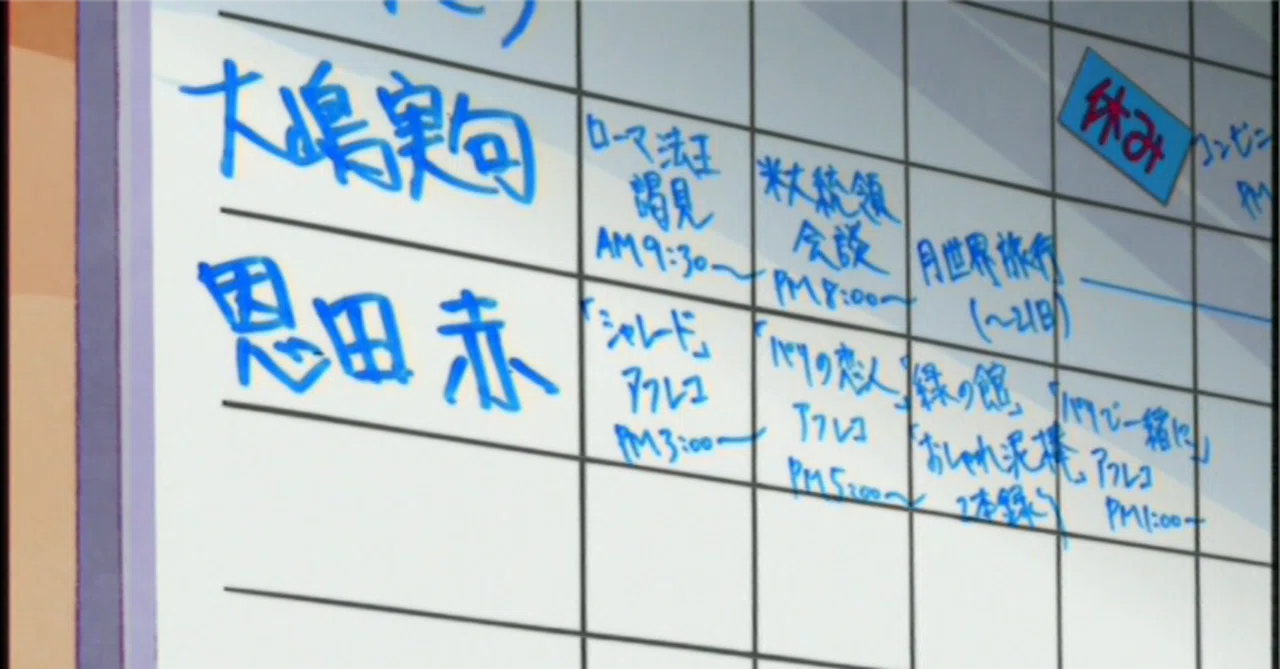 大嶋実句
ローマ法王
謁見
AM9:30〜
米大統領
会談
PM8:00〜
月世界旅行
(〜21日)
休み
コンビニ
PM
恩田 赤
「シャレード」
アフレコ
PM3:00〜
「パリの恋人」
アフレコ
PM5:00〜
「緑の館」
「おしゃれ泥棒」
2本録り
「パリで一緒に」
アフレコ
PM1:00〜